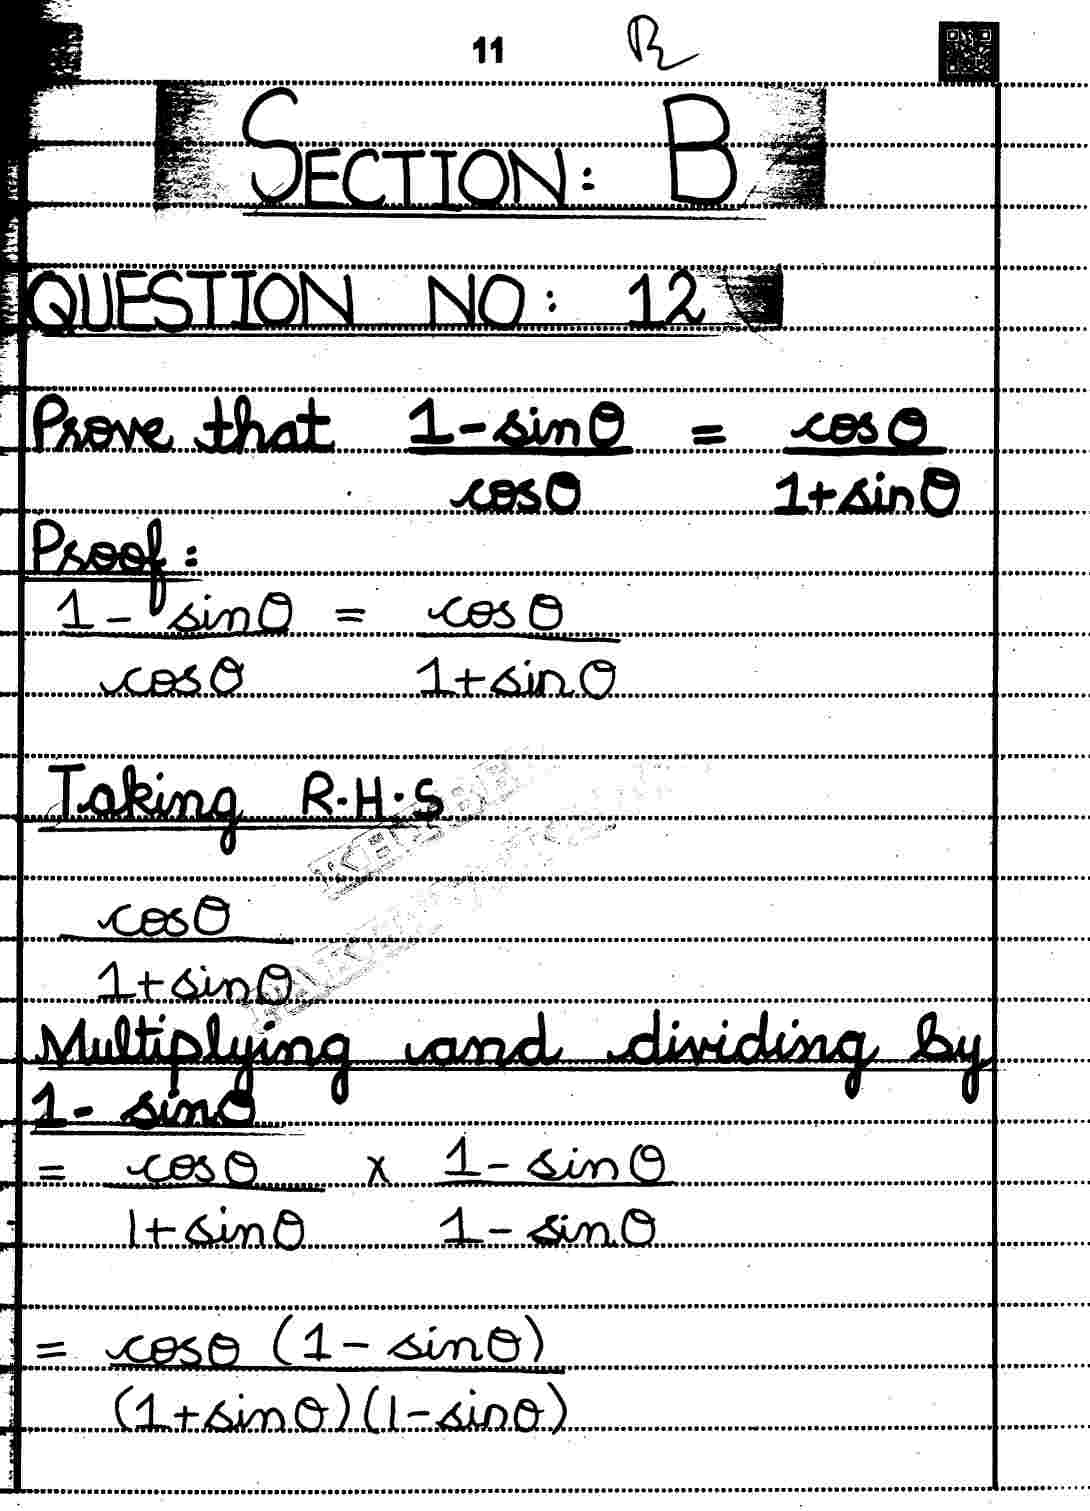 11
SECTION: B
QUESTION NO: 12
Prove that 1-sinθ = cosθ
cosθ 1+sinθ
Proof:
1- sinθ = cosθ
cosθ 1+sinθ
Taking R.H.S
cosθ
1+sinθ
Multiplying and dividing by
1- sinθ
= cosθ x 1- sinθ
1+sinθ 1- sinθ
= cosθ (1- sinθ)
(1+sinθ)(1-sinθ)